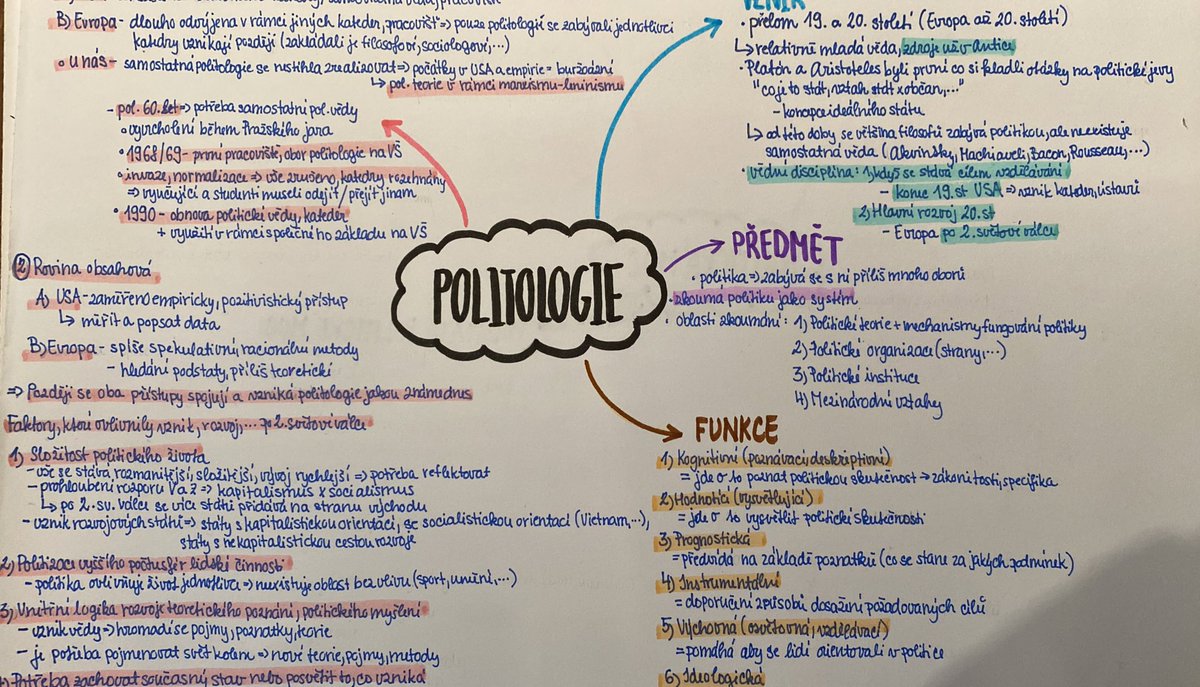 B) Evropa - dlouho odvíjena v rámci jiných kateder, pracovišť => pouze politologií se zabývali jednotlivci
katedry vznikají později (zakládali je filosofové, sociologové,...)
• u nás - samostatná politologie se nestihla zrealizovat => počátky v USA a empirie = buržoazní
↳ pol. teorie v rámci marxismu-leninismu
- pol. 60. let => potřeba samostatné pol. vědy
• vyvrcholení během Pražského jara
• 1968/69 - první pracoviště, obor politologie na VŠ
• invaze, normalizace => vše zrušeno, katedry rozehnány
=> vyučující a studenti museli odejít / přejít jinam
• 1990 - obnova politické vědy, kateder
+ využití v rámci společního základu na VŠ
② Rovina obsahová
A) USA - zaměřeno empiricky, pozitivistický přístup
↳ měřit a popsat data
B) Evropa - spíše spekulativní, racionální metody
- hledání podstaty, příliš teoretické
=> Později se oba přístupy spojují a vzniká politologie jakou známe dnes
Faktory, které ovlivnily vznik, rozvoj,... po 2. světové válce
1) Složitost politického života
- vše se stává rozmanitější, složitější, vývoj rychlejší => potřeba reflektovat
- prohloubení rozporu V a Z => kapitalismus x socialismus
↳ po 2. sv. válce se více států přidává na stranu východu
- vznik rozvojových států => státy s kapitalistickou orientací, se socialistickou orientací (Vietnam,...),
státy s nekapitalistickou cestou rozvoje
2) Politizace vyššího počtu sfér lidské činnosti
- politika ovlivňuje život jednotlivce => neexistuje oblast bez vlivu (sport, umění,...)
3) Vnitřní logika rozvoje teoretického poznání, politického myšlení
- vznik vědy => hromadí se pojmy, poznatky, teorie
- je potřeba pojmenovat svět kolem => nové teorie, pojmy, metody
4) Potřeba zachovat současný stav nebo posvětit to, co vzniká
POLITOLOGIE
VZNIK
• přelom 19. a 20. století (Evropa až 20. století)
↳ relativně mladá věda, zdroje už v Antice
• Platón a Aristoteles byli první co si kladli otázky na politické jevy
"co je to stát, vztah stát x občan,..."
- koncepce ideálního státu
↳ od této doby se většina filosofů zabývá politikou, ale neexistuje
samostatná věda (Akvinský, Machiaveli, Bacon, Rousseau,...)
• vědní disciplína: 1) když se stává cílem vzdělávání
- konec 19. st USA => vznik kateder, ústavů
2) Hlavní rozvoj 20. st
- Evropa po 2. světové válce
PŘEDMĚT
• politika => zabývá se s ní příliš mnoho oborů
• zkoumá politiku jako systém
• oblasti zkoumání: 1) Politické teorie + mechanismy fungování politiky
2) Politické organizace (strany,...)
3) Politické instituce
4) Mezinárodní vztahy
FUNKCE
1) Kognitivní (poznávací, deskriptivní)
= jde o to poznat politickou skutečnost → zákonitosti, specifika
2) Hodnotící (vysvětlující)
= jde o to vysvětlit politické skutečnosti
3) Prognostická
= předvídá na základě poznatků (co se stane za jakých podmínek)
4) Instrumentální
= doporučení způsobů dosažení požadovaných cílů
5) Výchovná (osvětovná, vzdělávací)
= pomáhá aby se lidi orientovali v politice
6) Ideologická